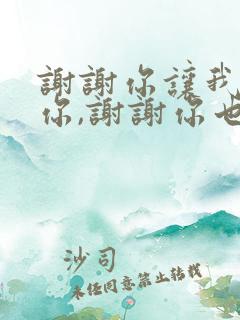 謝謝你讓我
你,謝謝你也
沙司
未任同意禁止轉載